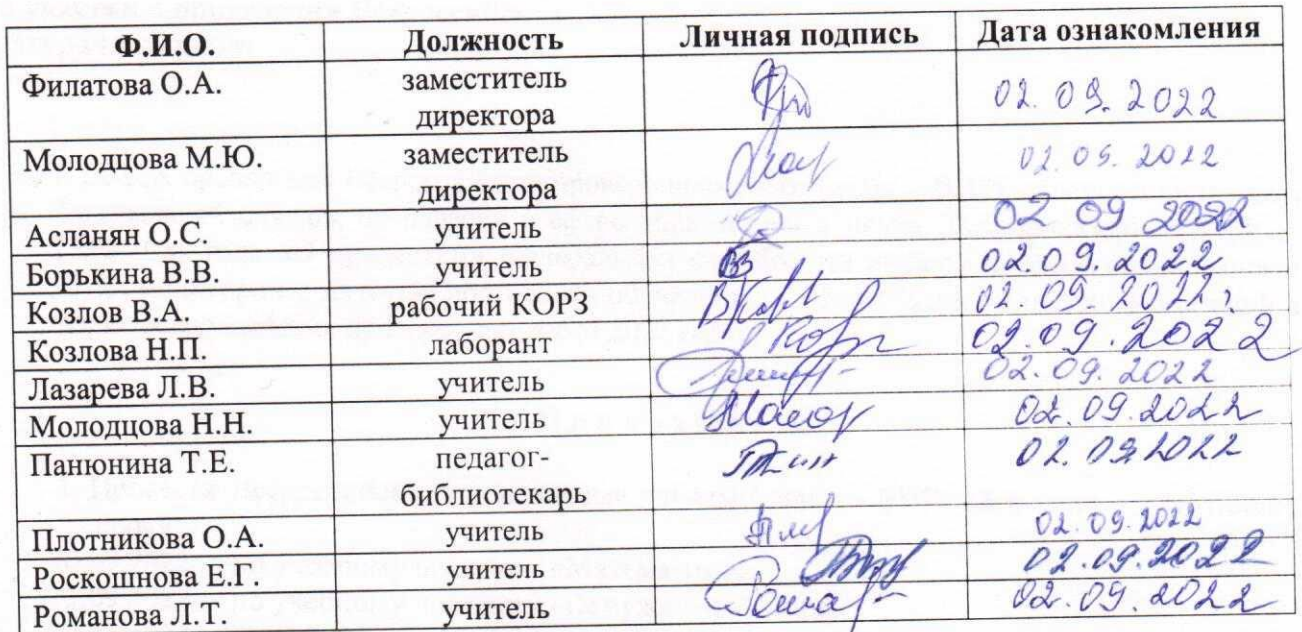 Ф.И.О. Должность Личная подпись Дата ознакомления
Филатова О.А. заместитель директора 02.09.2022
Молодцова М.Ю. заместитель директора 02.09.2022
Асланян О.С. учитель 02 09 2022
Борькина В.В. учитель 02.09.2022
Козлов В.А. рабочий КОРЗ 02.09.2022
Козлова Н.П. лаборант 02.09.2022
Лазарева Л.В. учитель 02.09.2022
Молодцова Н.Н. учитель 02.09.2022
Панюнина Т.Е. педагог-библиотекарь 02.09.2022
Плотникова О.А. учитель 02.09.2022
Роскошнова Е.Г. учитель 02.09.2022
Романова Л.Т. учитель 02.09.2022